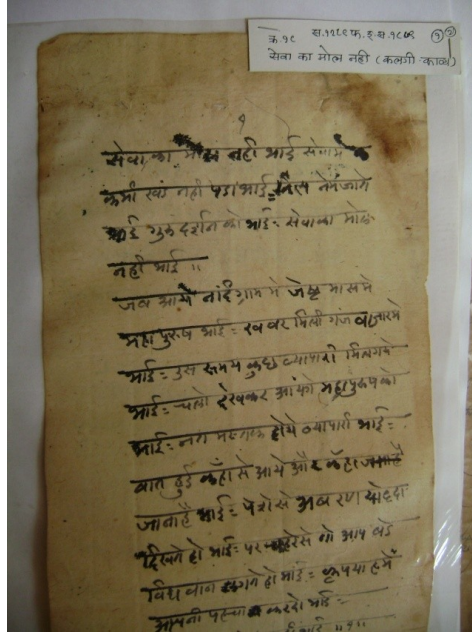 क्र.१८ स.१२८९ फ.इ.स.१८७९
सेवा का मोल नही (कलगी काव्य)
१
सेवा का मोल नही भाई सेवामे
कमी खंड नही पडा भाई = नित नेमं जागे
भाई गुरु दर्शन को भाई = सेवाका मोल
नही भाई ॥
जब आये नांदिग्राम मे जेष्ठ मासमे
महापुरुष भाई = खबर मिली गंज बाजारमे
भाई = उस समय कुछ व्यापारी मिलगये
भाई = चलो देखकर आंये महापुरुषको
भाई = नत मस्तक होये व्यापारी भाई =
बात हुई कँहा से आये और कँहा
जाना है भाई = पेशे से अब रण योद्दा
दिखते हो भाई = पर चहेरेसे तो आप बडे
विधवान लगते हो भाई = कृपया हमें
आपनी करदो भाई =
भाई ॥१॥